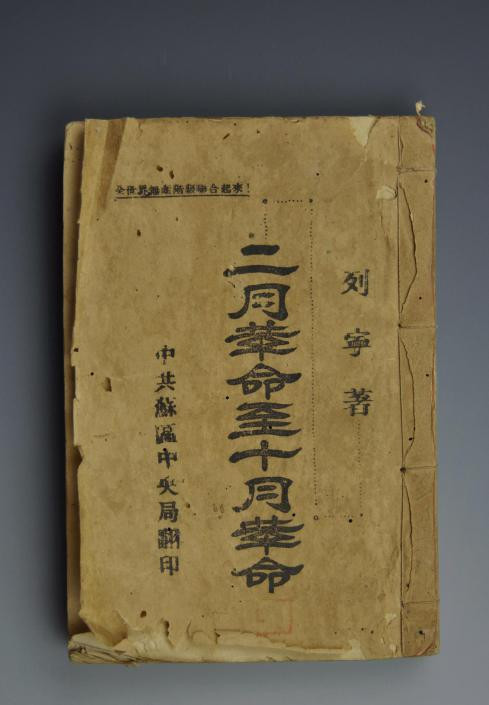 全世界無產階級聯合起來!
列寧著
二月革命至十月革命
中共蘇區中央局翻印